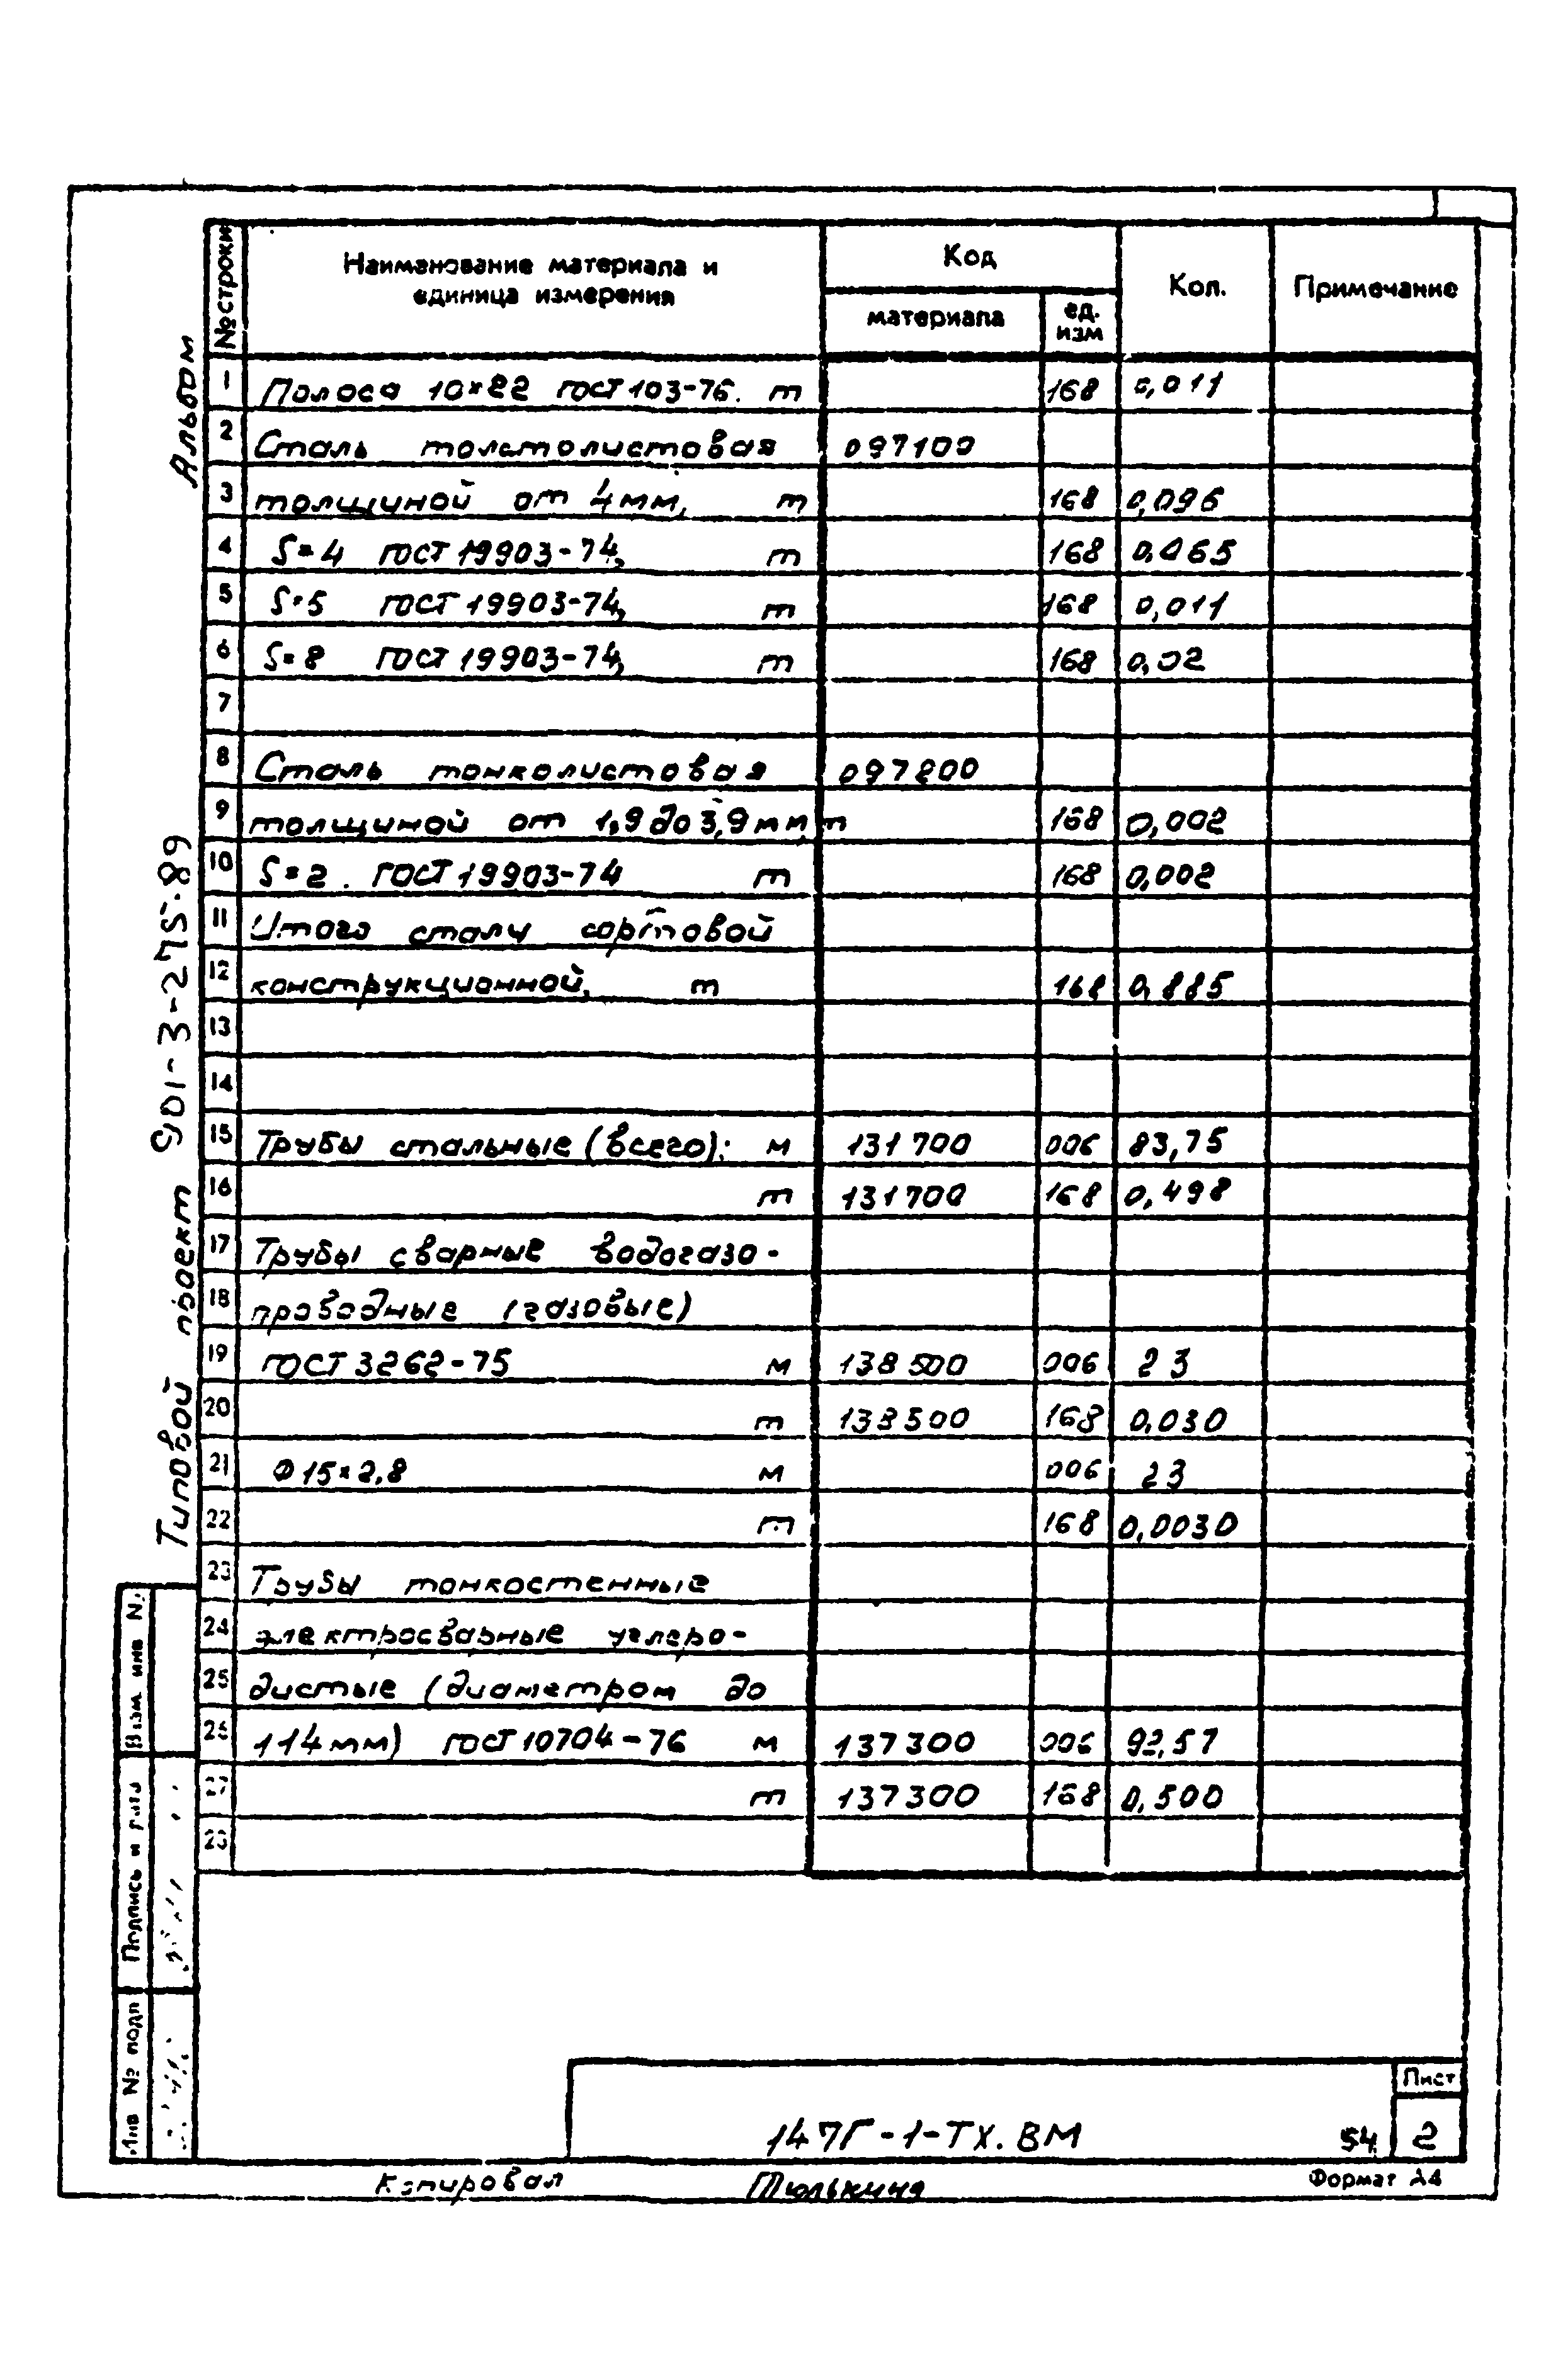 № строки
Наименование материала и
единица измерения
Код
материала
ед.
изм
Кол.
Примечание
1 Полоса 10×22 ГОСТ 103-76. т 168 0,011
2 Сталь толстолистовая 097100
3 толщиной от 4 мм, т 168 0,096
4 S=4 ГОСТ 19903-74, т 168 0,065
5 S=5 ГОСТ 19903-74, т 168 0,011
6 S=8 ГОСТ 19903-74, т 168 0,02
7
8 Сталь тонколистовая 097200
9 толщиной от 1,9 до 3,9 мм, т 168 0,002
10 S=2. ГОСТ 19903-74 т 168 0,002
11 Итого стали сортовой
12 конструкционной, т 168 0,885
13
14
15 Трубы стальные (всего): м 131700 006 83,75
16 т 131700 168 0,498
17 Трубы сварные водогазо-
18 проводные (газовые)
19 ГОСТ 3262-75 м 138500 006 23
20 т 138500 168 0,030
21 Ф15×2,8 м 006 23
22 т 168 0,0030
23 Трубы тонкостенные
24 электросварные углеро-
25 дистые (диаметром до
26 114 мм) ГОСТ 10704-76 м 137300 006 92,57
27 т 137300 168 0,500
28
Альбом
Типовой проект 901-3-275.89
Взам. инв №
Подпись и дата
Инв № подп
147Г-1-ТХ.ВМ
54
Лист
2
Копировал Тюлькина Формат А4